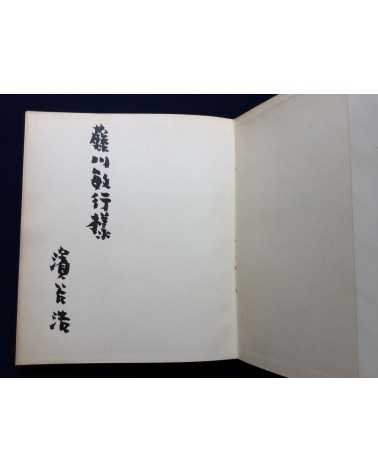 藤川敏行様
濱谷浩